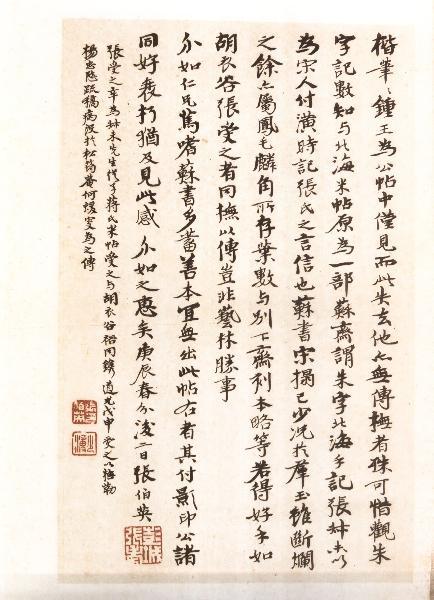 楷筆筆鍾王為公帖中僅見而此失去他亦無傳摹者殊可惜觀朱
字記數知與北海米帖原為一部蘇齋謂朱字北海手記張叔未以
為宋人付潢時記張氏之言信也蘇書宋搨已少況於羣玉雖斷爛
之餘亦屬鳳毛麟角所存葉數與別下齋刻本略等若得好手如
胡衣谷張受之者同橅以傳豈非藝林勝事
介如仁兄篤嗜蘇書多蓄善本宜無出此帖右者其付影印公諸
同好衰朽猶及見此感介如之惠矣庚辰春分後二日張伯英
張受之辛為叔未先生從子蔣氏米帖受之與胡衣谷裕同鐫道光戊申受之以橅勒
楊忠愍疏稿病歿於松筠菴何媛叟為之傳